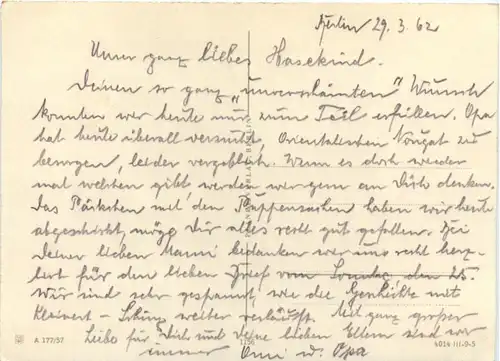 Berlin 29.3.62
Unser ganz liebes Hasekind.
Deinen so ganz „unverschämten" Wunsch
konnten wir heute nur zum Teil erfüllen. Opa
hat heute überall versucht, Orientalischen Nougat zu
besorgen, leider vergeblich. Wenn es doch wieder
mal welchen gibt werden wir gern an Dich denken.
Das Päckchen mit den Puppensachen haben wir heute
abgeschickt, mögg Dir alles recht gut gefallen. Bei
Deiner lieben Mami bedanken wir uns recht herz-
lich für den lieben Brief vom Sonntag, den 25.
Wir sind sehr gespannt, wie die Geschichte mit
weiter verläuft. Mit ganz großer
Liebe für Dich und Deine lieben Eltern sind wir
immer Omi u. Opa
A 177/57